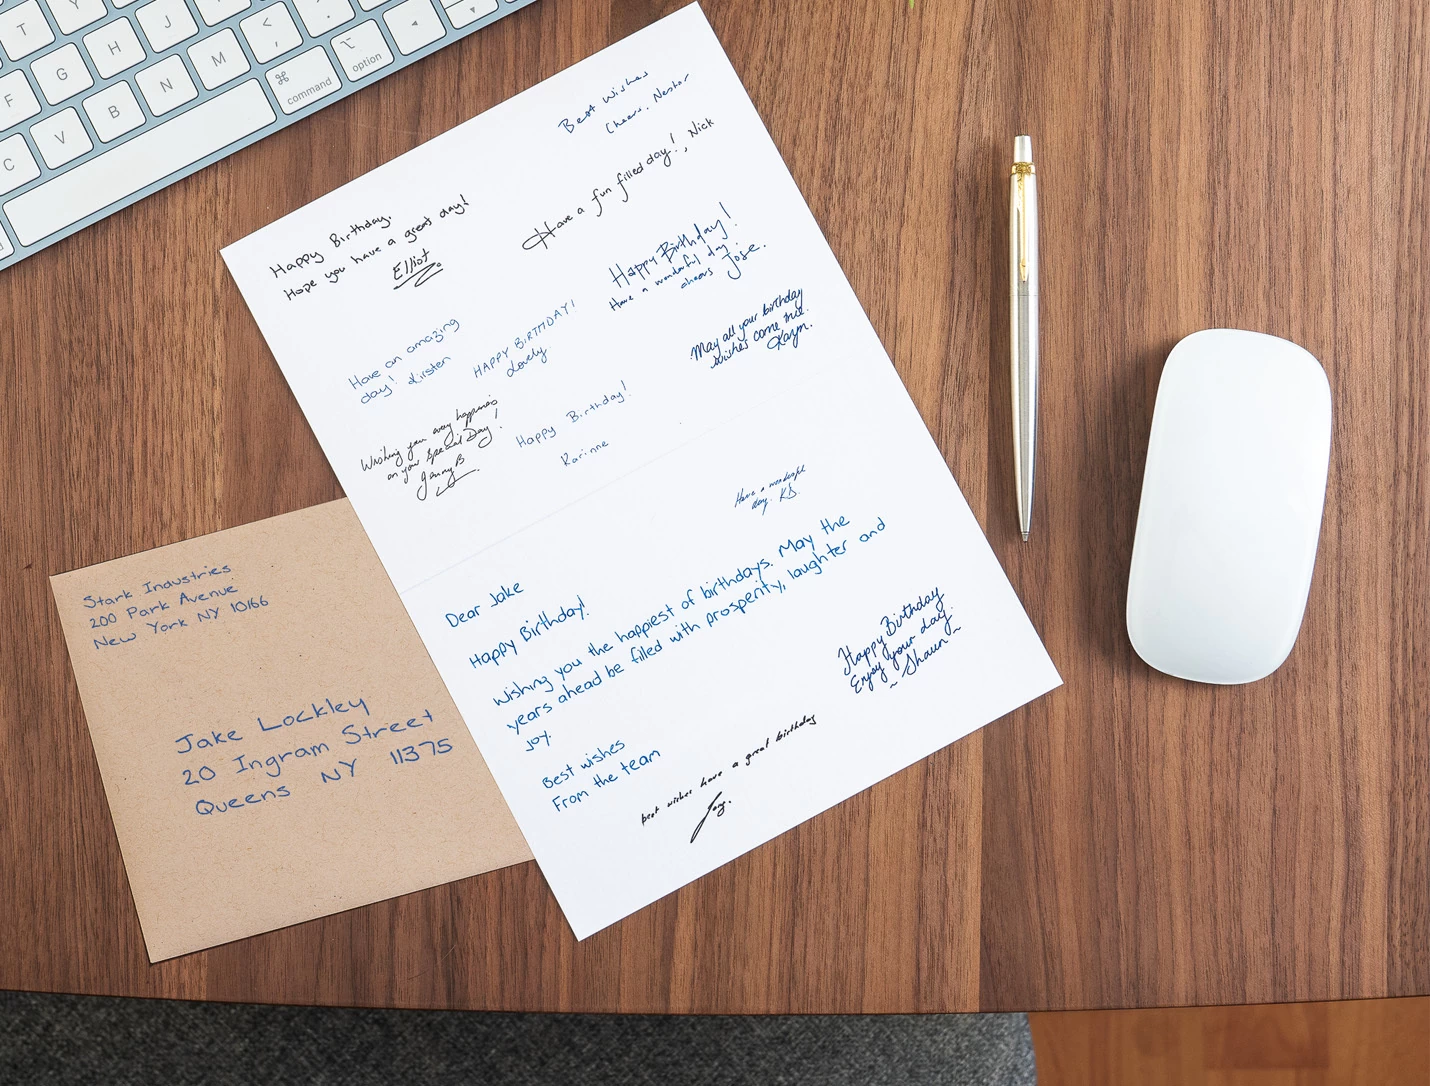 T Y
F G H J < , > .
C V B N M
⌘ command
⌥ option
◂ ▾
Best Wishes
Cheers, Nestor
Have a fun filled day!, Nick
Happy Birthday,
Hope you have a great day!
Elliot
Happy Birthday!
Have a wonderful day
cheers Jose.
Have an amazing
day! Kirsten
HAPPY BIRTHDAY!
Lovely
May all your birthday
wishes come true.
Wishing you every happiness
on your special Day!
Jenny B
Happy Birthday!
Karinne
Have a wonderful
day. KD.
Dear Jake
Happy Birthday!
Wishing you the happiest of birthdays. May the
years ahead be filled with prosperity, laughter and
joy.
Best wishes
From the team
Happy Birthday
Enjoy your day.
~ Shaun ~
best wishes have a great birthday
Stark Industries
200 Park Avenue
New York NY 10166
Jake Lockley
20 Ingram Street
Queens NY 11375